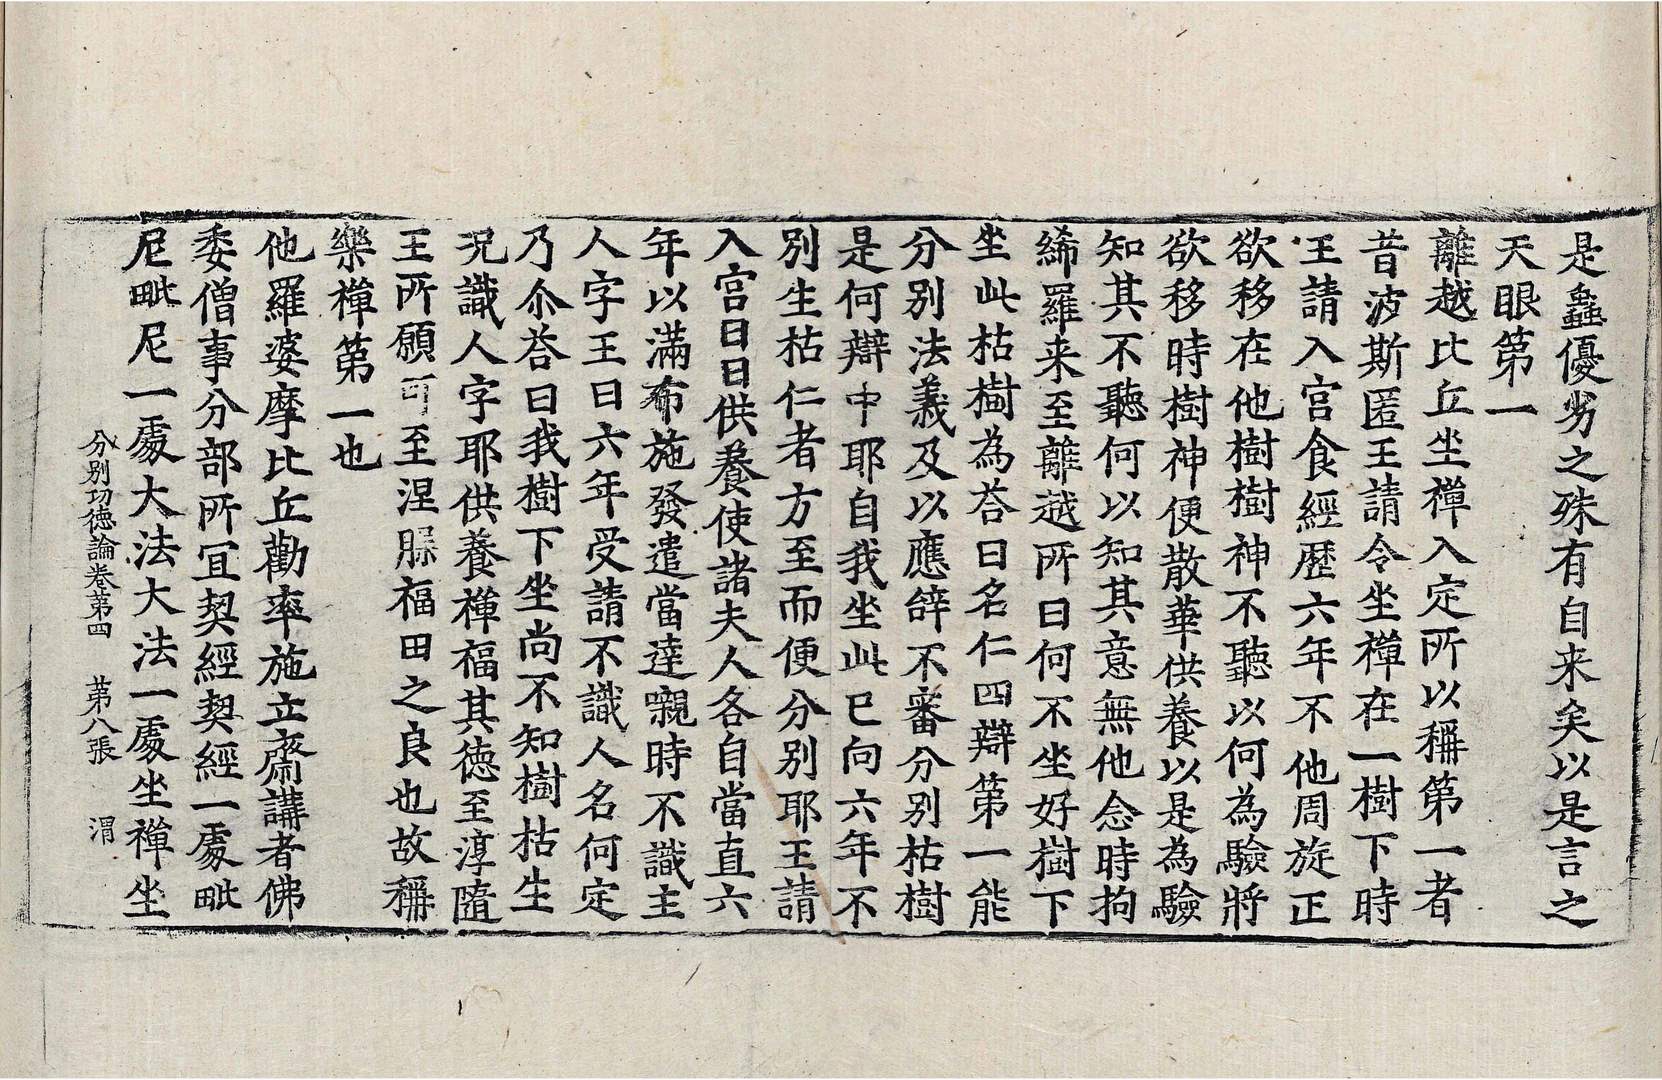 是麤優劣之殊有自来矣以是言之
天眼第一
離越比丘坐禪入定所以稱第一者
昔波斯匿王請令坐禪在一樹下時
王請入宮食經歷六年不他周旋正
欲移在他樹樹神不聽以何為驗將
欲移時樹神便散華供養以是為驗
知其不聽何以知其意無他念時拘
絺羅来至離越所曰何不坐好樹下
坐此枯樹為荅曰名仁四辯第一能
分別法義及以應辝不審分別枯樹
是何辯中耶自我坐此已向六年不
別生枯仁者方至而便分別耶王請
入宮日日供養使諸夫人各自當直六
年以滿布施發遣當達嚫時不識主
人字王曰六年受請不識人名何定
乃尒荅曰我樹下坐尚不知樹枯生
況識人字耶供養禪福其德至淳隨
王所願可至涅槃福田之良也故稱
樂禪第一也
他羅婆摩比丘勸率施立齋講者佛
委僧事分部所宜契經契經一處毗
尼毗尼一處大法大法一處坐禪坐
分別功德論卷第四　第八張　渭